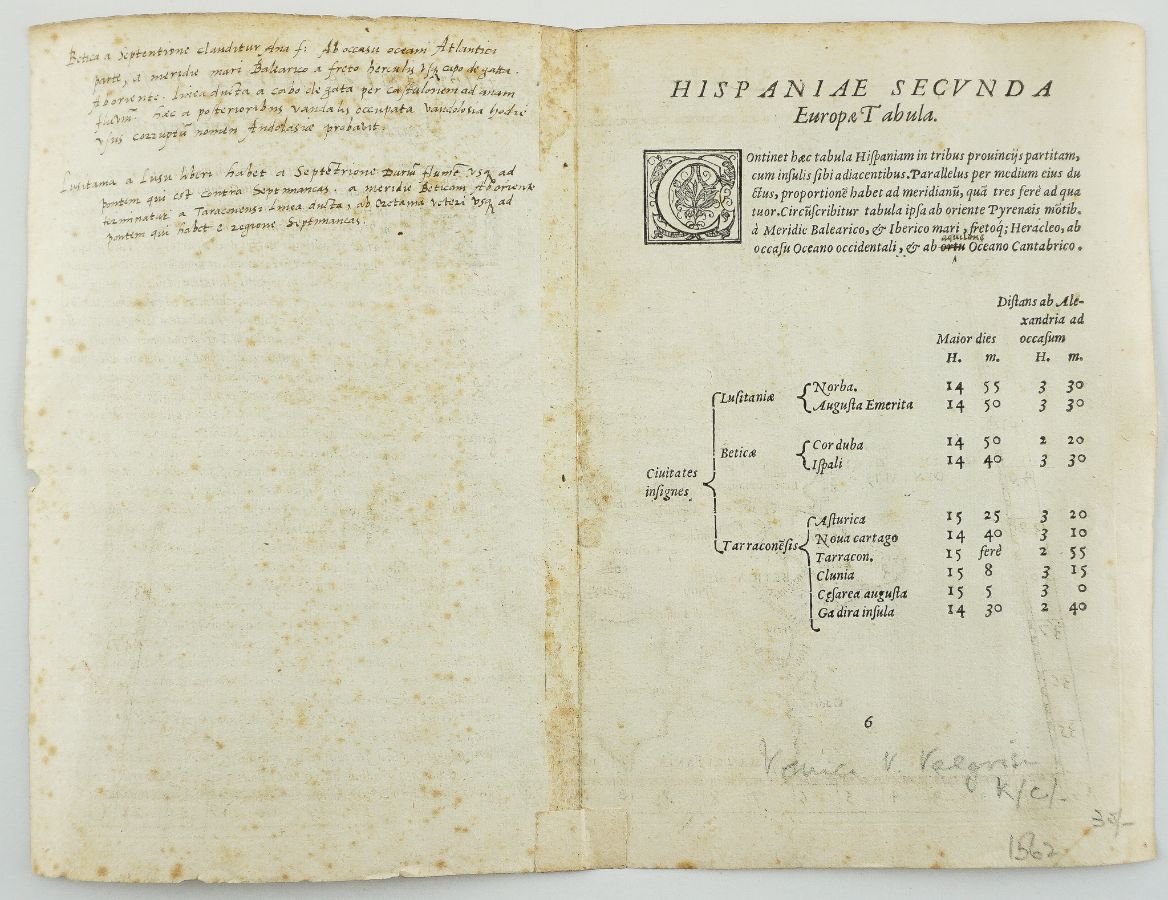 Betica a Septentrione clauditur Ana f: Ab occasu oceani Atlantici
parte, a meridie mari Balearico a freto herculis usq capo de gatta.
Ab oriente. linea ducta a cabo de gata per castulonem ad anam
fluvm. hæc a posterioribus vandalis occupata vandolosia hodie
usus corruptũ nomen Andolasiæ probavit.
Lusitania a Lusu liberi habet a Septẽtrione Durũ flumẽ usq ad
pontem qui est contra Septimancas. a meridie Beticam Ab oriente
terminatur a Taraconensi linea ducta, ab Oretania veteri usq ad
pontem qui habet e regione Septimancas.
HISPANIAE SECVNDA
Europæ Tabula.
COntinet hæc tabula Hiſpaniam in tribus prouincijs partitam,
cum inſulis ſibi adiacentibus. Parallelus per medium eius du
ctus, proportionẽ habet ad meridianũ, quã tres ferè ad qua
tuor. Circũſcribitur tabula ipſa ab oriente Pyrenæis mõtib.
à Meridie Balearico, & Iberico mari, fretoq́; Heracleo, ab
aquilone
occaſu Oceano occidentali, & ab ortu Oceano Cantabrico.
Diſtans ab Ale-
xandria ad
Maior dies occaſum
H. m. H. m.
Luſitaniæ Norba. 14 55 3 30
Auguſta Emerita 14 50 3 30
Beticæ Corduba 14 50 2 20
Iſpali 14 40 3 30
Ciuitates
inſignes
Tarraconẽſis Aſturica 15 25 3 20
Noua cartago 14 40 3 10
Tarracon. 15 ferè 2 55
Clunia 15 8 3 15
Ceſarea auguſta 15 5 3 0
Gadira inſula 14 30 2 40
6
Venice V. Valgrisi
K/C/-
30/-
1562